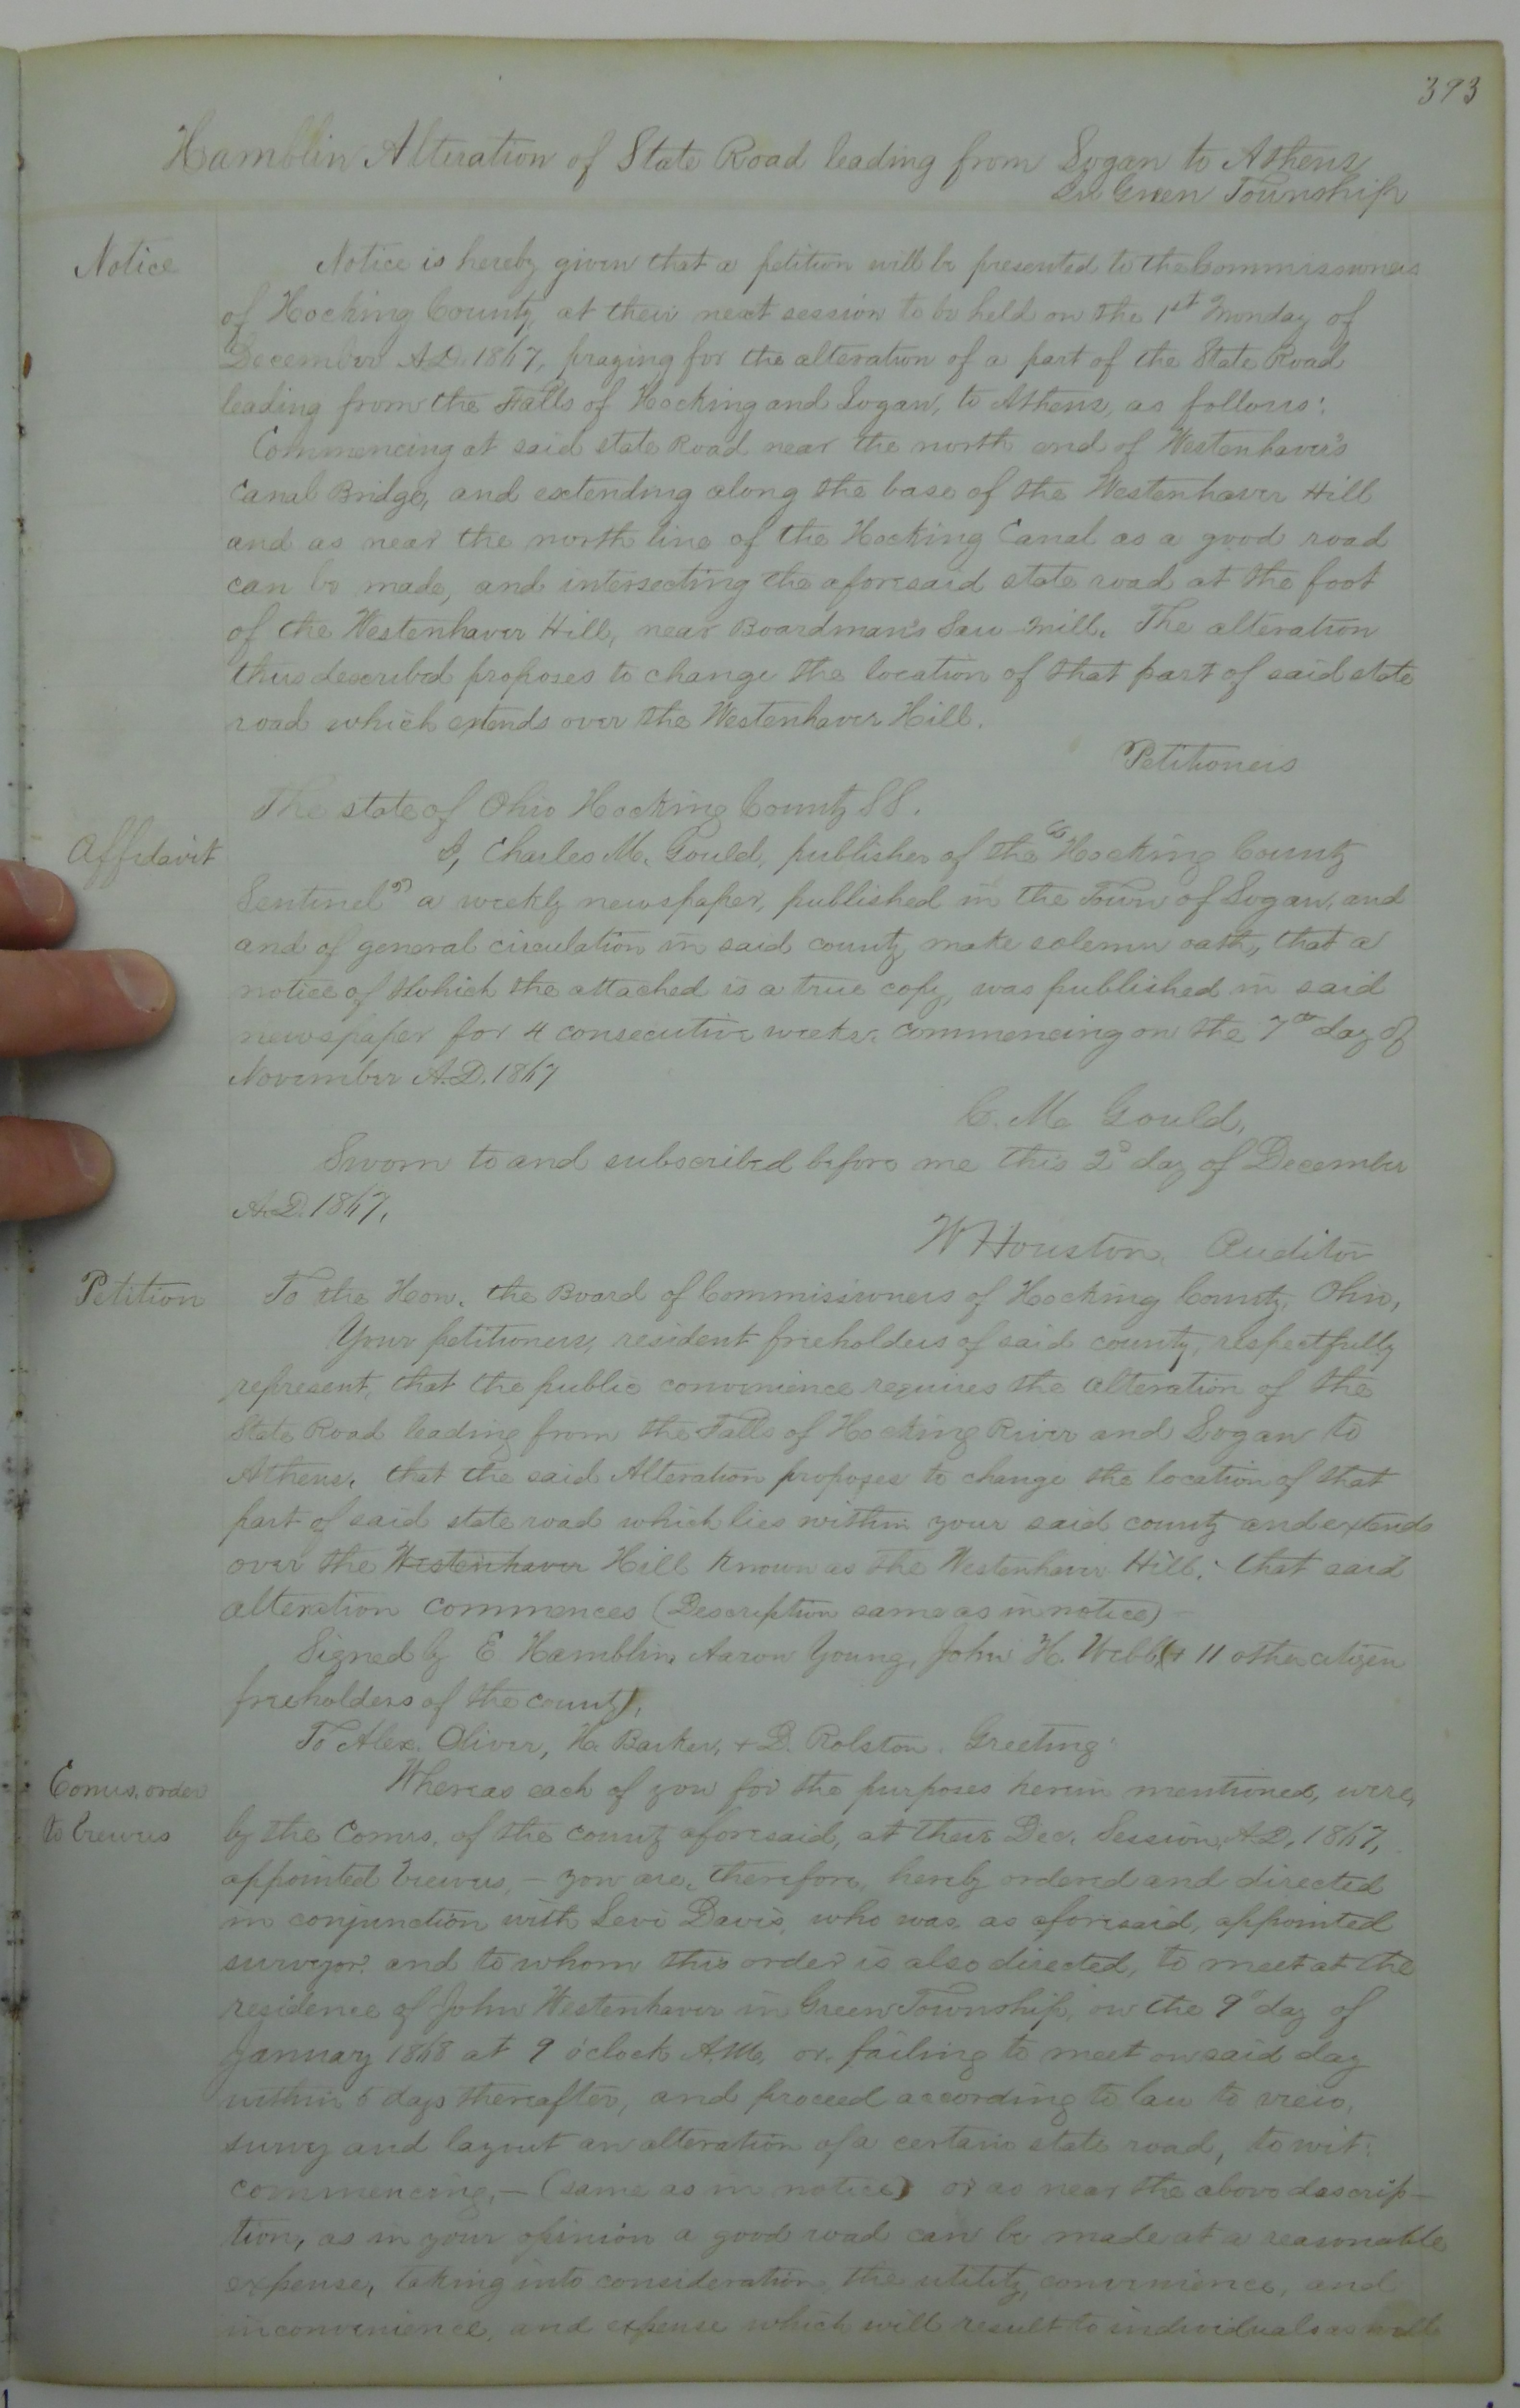 393
Hamblin Alteration of State Road leading from Logan to Athens
In Green Township
Notice
Notice is hereby given that a petition will be presented to the Commissioners
of Hocking County, at their next session to be held on the 1st Monday of
December A.D. 1867, praying for the alteration of a part of the State Road
leading from the Falls of Hocking and Logan, to Athens, as follows:
Commencing at said state Road near the north end of Westenhaver's
Canal Bridge, and extending along the base of the Westenhaver Hill
and as near the north line of the Hocking Canal as a good road
can be made, and intersecting the aforesaid state road at the foot
of the Westenhaver Hill, near Boardman's Saw-Mill. The alteration
thus described proposes to change the location of that part of said state
road which extends over the Westenhaver Hill.
Petitioners
The state of Ohio Hocking County SS.
Affidavit
I, Charles M. Gould, publisher of the "Hocking County
Sentinel" a weekly newspaper, published in the Town of Logan, and
and of general circulation in said county, make solemn oath, that a
notice of which the attached is a true copy, was published in said
newspaper for 4 consecutive weeks, commencing on the 7th day of
November A.D. 1867
C. M. Gould,
Sworn to and subscribed before me this 2d day of December
A.D. 1867,
W Houston, Auditor
Petition
To the Hon. the Board of Commissioners of Hocking County, Ohio,
Your petitioners, resident freeholders of said county, respectfully
represent, that the public convenience requires the alteration of the
State Road leading from the Falls of Hocking River and Logan to
Athens, that the said Alteration proposes to change the location of that
part of said state road which lies within your said county and extends
over the Westenhaver Hill known as the Westenhaver Hill; that said
alteration commences (Description same as in notice)
Signed by E Hamblin, Aaron Young, John H. Webb, (+ 11 other citizen
freeholders of the county).
To Alex. Oliver, H. Barker, + D. Rolston. Greeting:
Comrs. order
to viewers
Whereas each of you for the purposes herein mentioned, were,
by the Comrs. of the county aforesaid, at their Dec. Session, A.D. 1867,
appointed viewers, — you are, therefore, hereby ordered and directed
in conjunction with Levi Davis, who was, as aforesaid, appointed
surveyor, and to whom this order is also directed, to meet at the
residence of John Westenhaver in Green Township, on the 9th day of
January 1868 at 9 o'clock A.M. or, failing to meet on said day
within 5 days thereafter, and proceed according to law to view,
survey and layout an alteration of a certain state road, to wit:
commencing, — (same as in notice) or as near the above descrip-
tion, as in your opinion a good road can be made at a reasonable
expense, taking into consideration the utility, convenience, and
inconvenience, and expense which will result to individuals as well